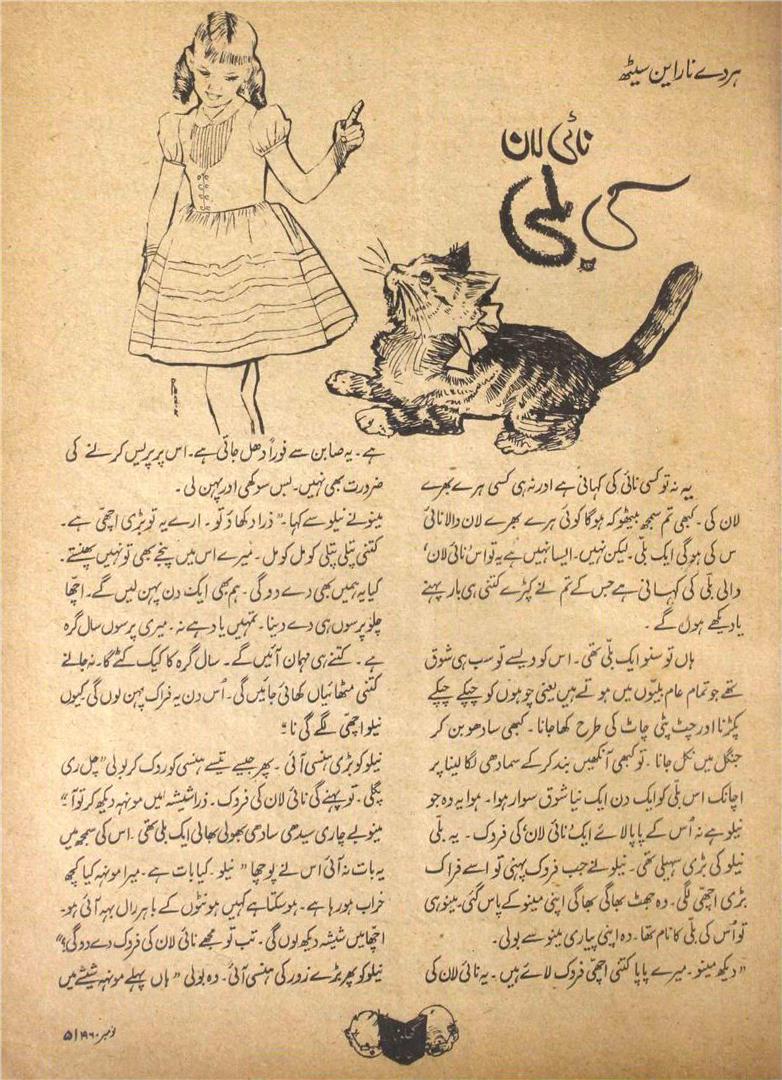 ہردے نارائن سیٹھ
نائی لان
کی بلی
یہ نہ تو کسی نائی کی کہانی ہے اور نہ ہی کسی ہرے بھرے
لان کی۔ کبھی تم سمجھ بیٹھو کہ ہوگا کوئی ہرے بھرے لان والا نائی
س کی ہوگی ایک بلّی۔ لیکن نہیں۔ ایسا نہیں ہے یہ تو اس ’نائی لان‘
والی بلّی کی کہانی ہے جس کے تم نے کپڑے کتنی ہی بار پہنے
یا دیکھے ہوں گے۔
ہاں تو سنو ایک بلّی تھی۔ اس کو ویسے تو سب ہی شوق
تھے جو تمام عام بلیوں میں ہوتے ہیں یعنی چوہوں کو چپکے چپکے
پکڑنا اور چٹ پٹی چاٹ کی طرح کھا جانا۔ کبھی سادھو بن کر
جنگل میں نکل جانا۔ تو کبھی آنکھیں بند کر کے سمادھی لگا لینا پر
اچانک اس بلّی کو ایک دن ایک نیا شوق سوار ہوا۔ ہوا یہ وہ جو
نیلو ہے نہ اُس کے پاپا لائے ایک ’نائی لان‘ کی فروک۔ یہ بلی
نیلو کی بڑی سہیلی تھی۔ نیلو نے جب فروک پہنی تو اسے فراک
بڑی اچھی لگی۔ وہ جھٹ بھاگی بھاگی اپنی مینو کے پاس گئی۔ مینو ہی
تو اُس کی بلّی کا نام تھا۔ وہ اپنی پیاری مینو سے بولی۔
”دیکھ مینو۔ میرے پاپا کتنی اچھی فروک لائے ہیں۔ یہ نائی لان کی
ہے۔ یہ صابن سے فوراً دھل جاتی ہے۔ اس پر پریس کرنے کی
ضرورت بھی نہیں۔ بس سوکھی اور پہن لی۔
مینو نے نیلو سے کہا۔ ”ذرا دکھاؤ تو۔ ارے یہ تو بڑی اچھی ہے۔
کتنی پتلی پتلی کومل کومل۔ میرے اس میں پنجے بھی تو نہیں پھنستے۔
کیا یہ ہمیں بھی دے دو گی۔ ہم بھی ایک دن پہن لیں گے۔ اچھا
چلو پرسوں ہی دے دینا۔ تمہیں یاد ہے نہ۔ میری پرسوں سال گرہ
ہے۔ کتنے ہی مہمان آئیں گے۔ سال گرہ کا کیک کٹے گا۔ نہ جانے
کتنی مٹھائیاں کھائی جائیں گی۔ اُس دن یہ فراک پہن لوں گی کیوں
نیلو اچھی لگے گی نا“
نیلو کو بڑی ہنسی آئی۔ پھر جیسے تیسے ہنسی کو روک کر بولی ”چل ری
پگلی۔ تو پہنے گی نائی لان کی فروک۔ ذرا شیشہ میں مونہہ دیکھ کر تو آ“
مینو بے چاری سیدھی سادھی بھولی بھالی ایک بلی تھی۔ اس کی سمجھ میں
یہ بات نہ آئی اس نے پوچھا ”نیلو۔ کیا بات ہے۔ میرا مونہہ کیا کچھ
خراب ہو رہا ہے۔ ہو سکتا ہے کہیں ہونٹوں کے باہر رال بہہ آئی ہو۔
اچھا میں شیشہ دیکھ لوں گی۔ تب تو مجھے نائی لان کی فروک دے دو گی؟“
نیلو کو پھر بڑے زور کی ہنسی آئی۔ وہ بولی ”ہاں پہلے مونہہ شیشے میں
نومبر ۱۹۶۰ / ۵